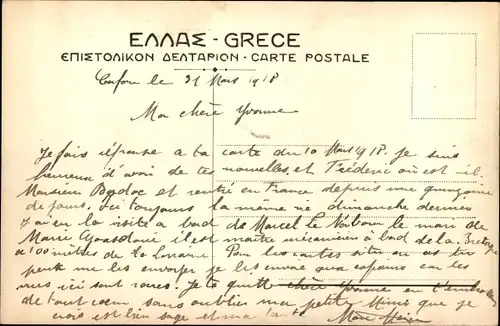 ΕΛΛΑΣ - GRECE
ΕΠΙΣΤΟΛΙΚΟΝ ΔΕΛΤΑΡΙΟΝ - CARTE POSTALE
le 31 Mars 1918
Ma chère Yvonne
Je fais réponse a ta carte du 10 Mars 1918. je suis
heureux d'avoir de tes nouvelles, et Fréderic où est-il.
Monsieur est rentré en France depuis une quinzaine
de jours. Ici toujours la même vie dimanche dernier
J'ai eu la visite a bord de Marcel Le le mari de
Marie il est maître mécanicien à bord de la
a 100 mètres de la Lorraine. Pour les cartes situ as tu
peux me les envoyer je les envoie aux copains car les
vues ici sont rares. Je te quitte chère Yvonne en t'embrassant
de tout cœur sans oublier ma petite Mimie que je
crois est bien sage et ma tante